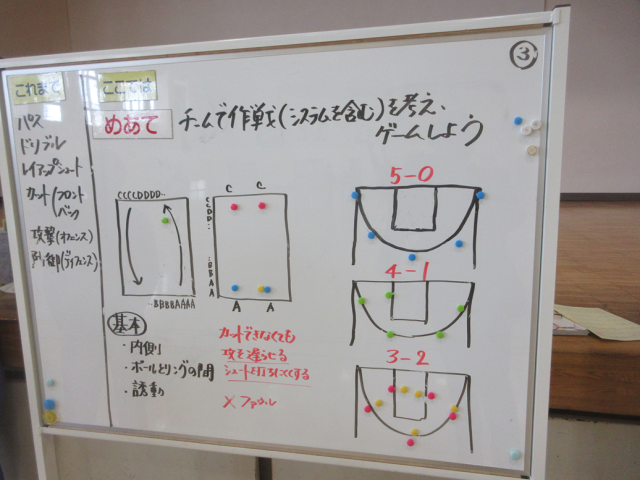 ③
これまで
ここでは
パス
ドリブル
レイアップシュート
カット/フロント
バック
攻撃(オフェンス)
防御(ディフェンス)
めあて
チームで作戦(システムを含む)を考え、
ゲームしよう
CCCCDDDD‥
‥BBBBAAAA
C C
CDD‥
‥BBAA
A A
5-0
4-1
3-2
基本
・内側
・ボールとリングの間
・誘動
カットできなくても
攻を遅らせる
シュートを打ちにくくする
×ファウル